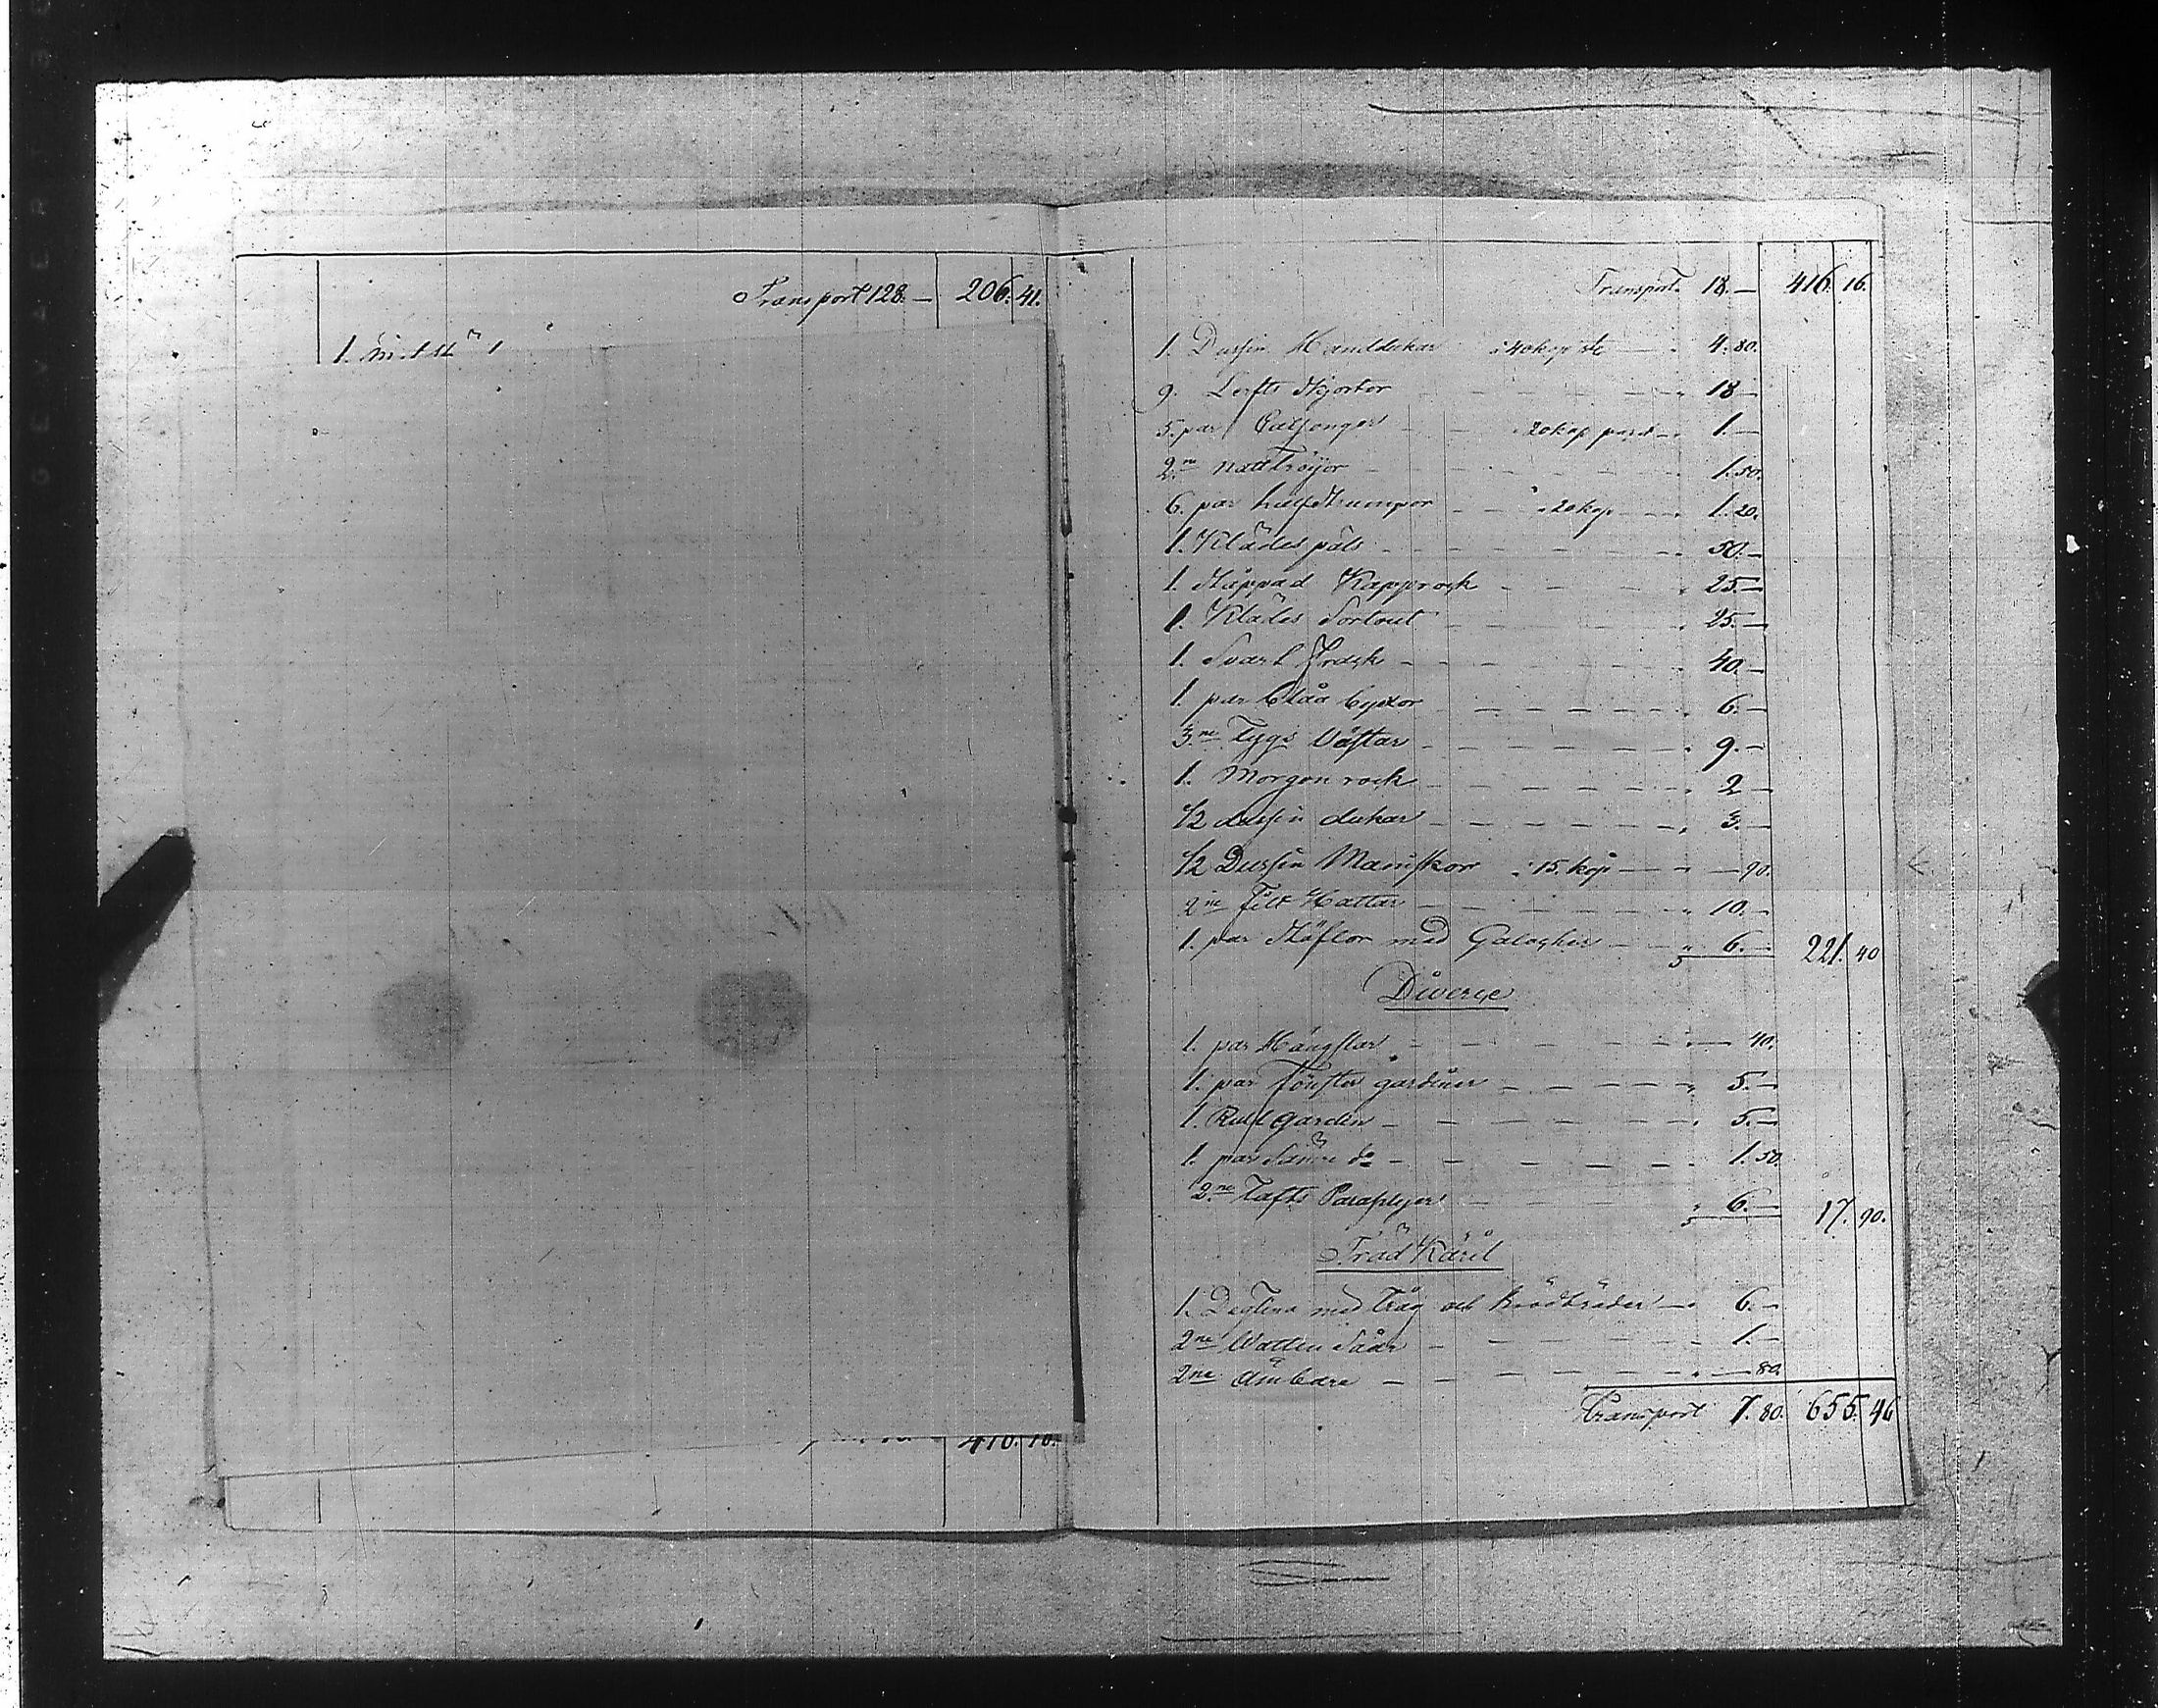 Transport 128. — 206. 41.
1.
Transport. 18. — 416. 16.
1. Dussin Handdukar à 40 kop st. — 4. 80.
9. Lerfts Skjortor — 18 —
5. par Calsonger 20 kop paret — 1. —
2ne nattröijor — 1. 50.
6. par halfstrumpor à 20 kop — 1. 20.
1. Klädes päls — 50. —
1. Kapprock — 25. —
1. Klädes Sortout — 25. —
1. Svart Frack — 40. —
1. par blåa byxor — 6. —
3ne Tygs Västar — 9. —
1. Morgon rock — 2 —
1/2 dussin dukar — 3. —
1/2 Dussin Manskor à 15. kop — 90.
2ne Filt Hattar — 10. —
1. par Stöflor med Galoscher — 6. — 221. 40
Diverse
1. par — 40.
1. par Fönster gardiner — 5. —
1. Rull garden — 5. —
1. par Sämre do — 1. 50.
2ne Tafts Paraplyer — 6. — 17. 90.
Träd Käril
1. Degtina med tråg och brödbräder — 6. —
2ne Watten Såar — 1. —
2ne Ämbare — 80.
Transport 7. 80. 655. 46